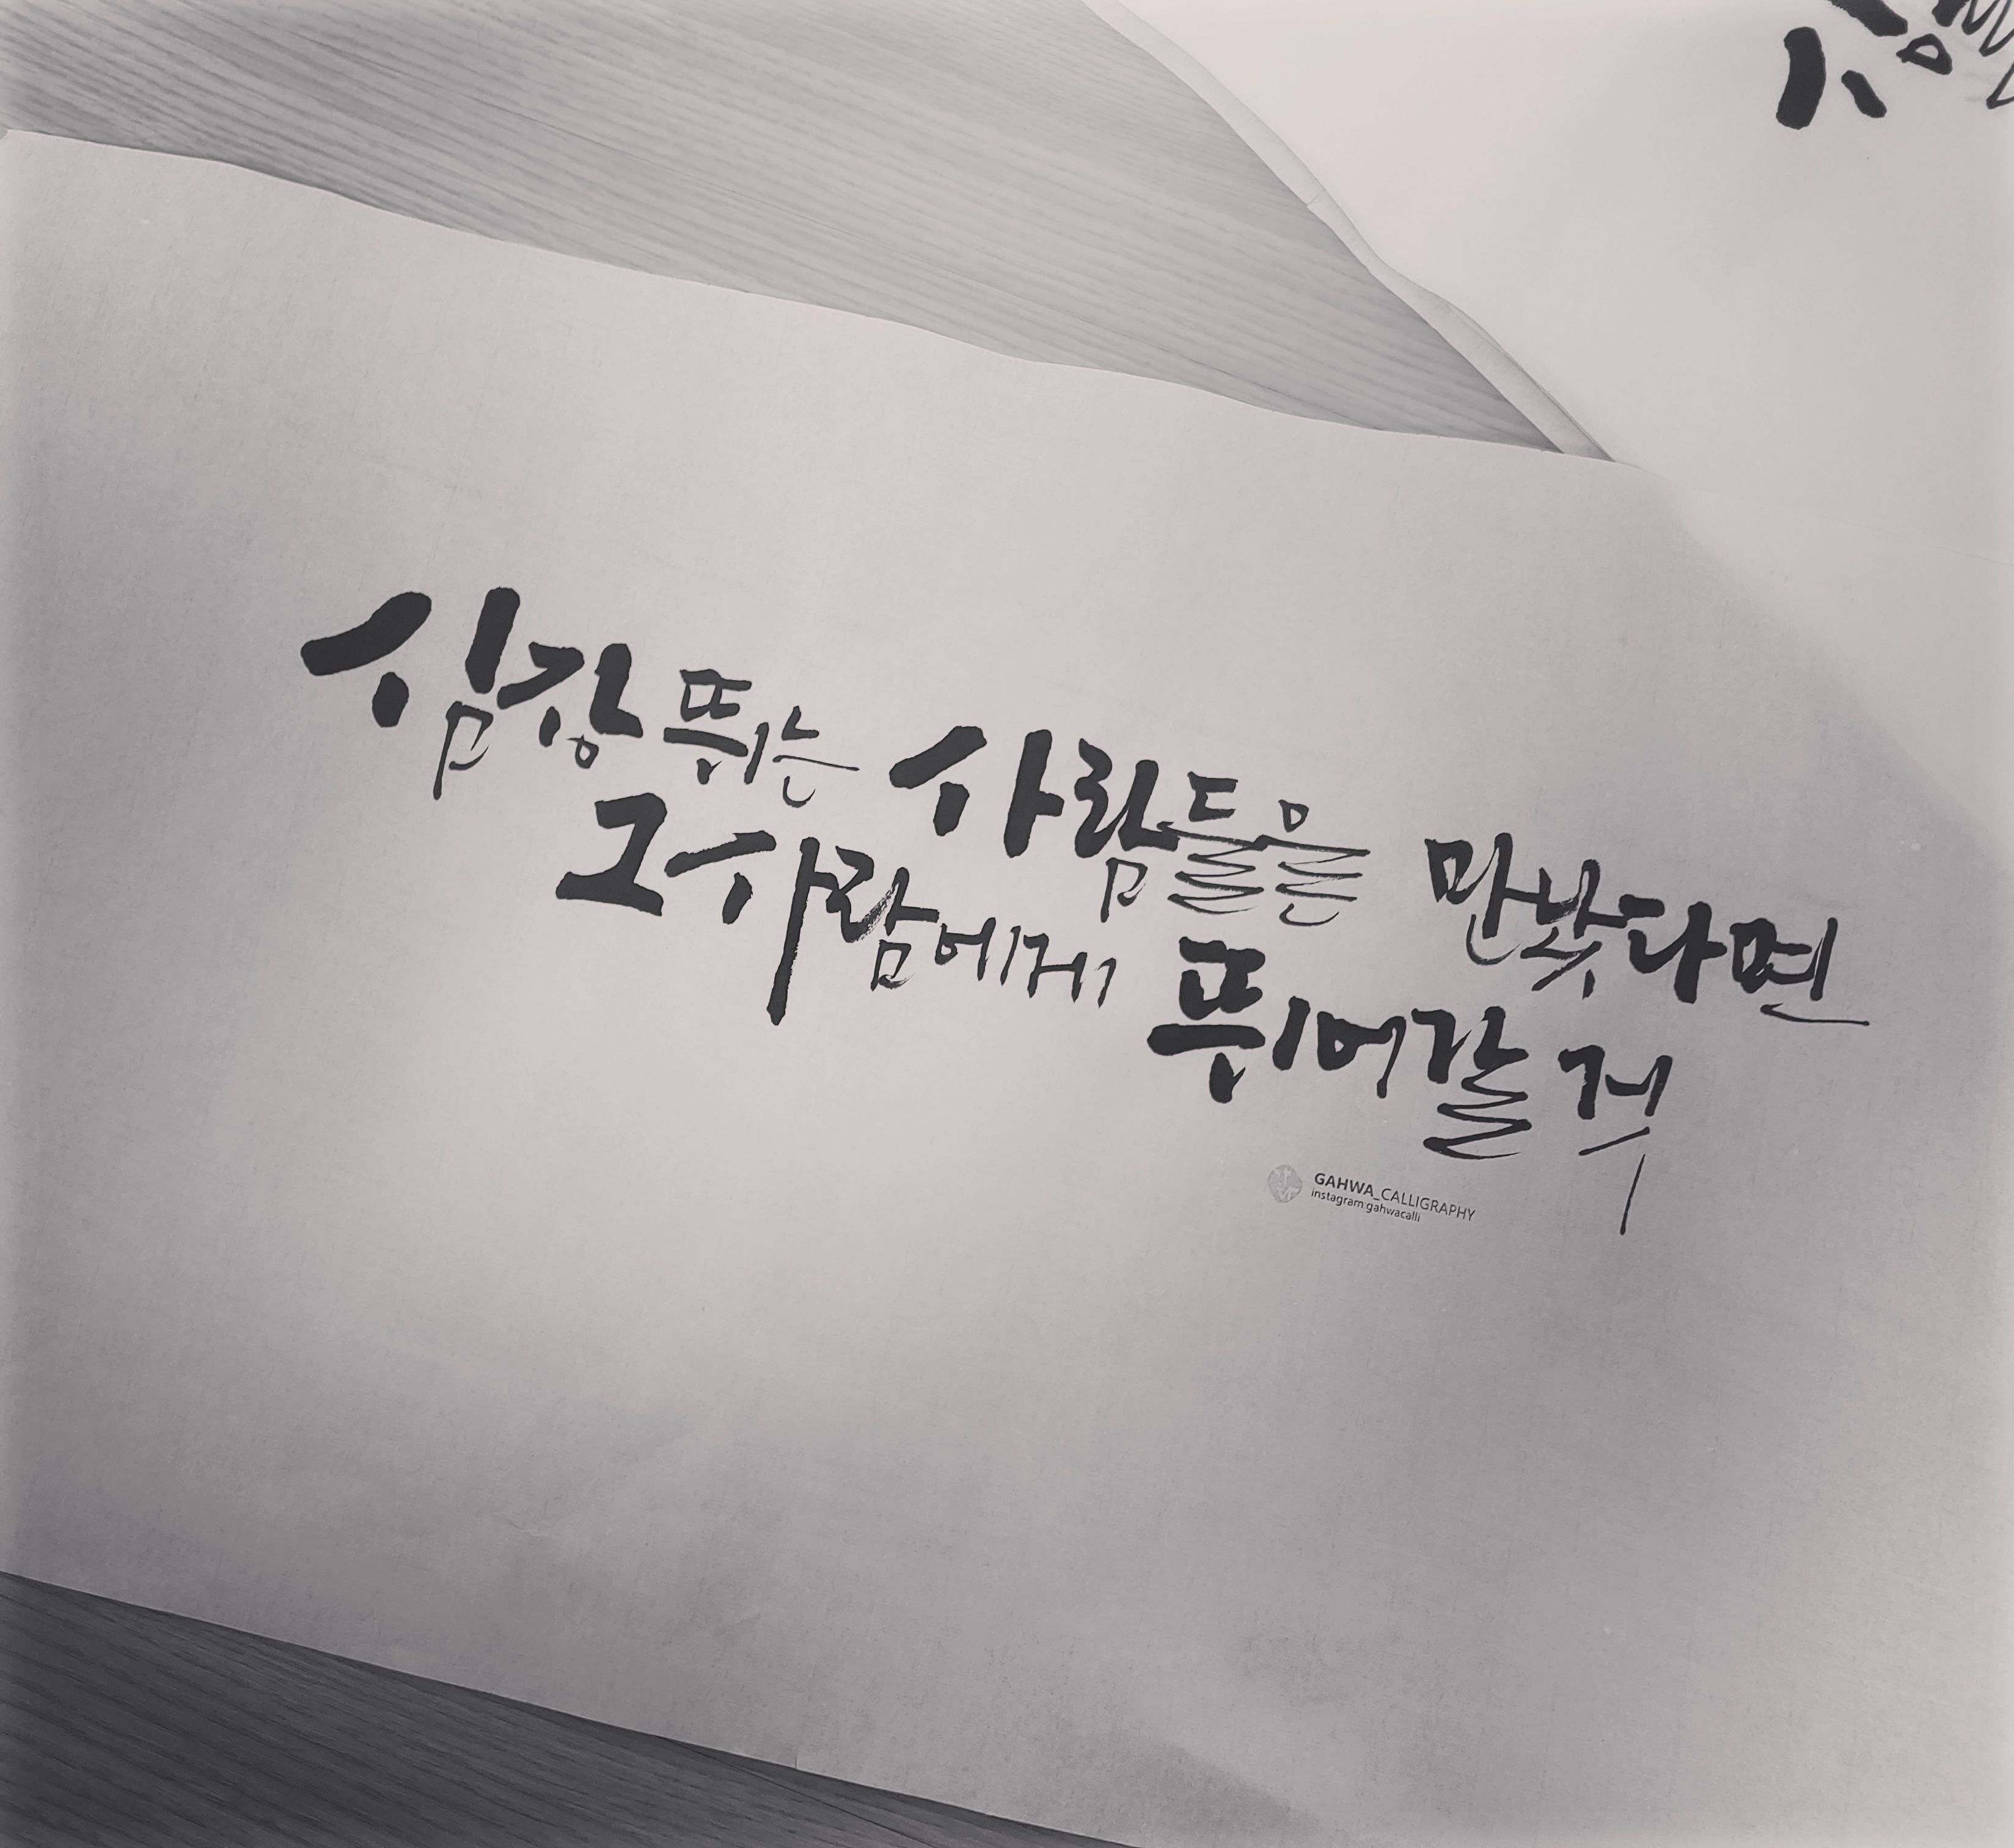 심장 뛰는 사람들을 만났다면
그 사람에게 뛰어갈 것
GAHWA_CALLIGRAPHY
instagram gahwacalli